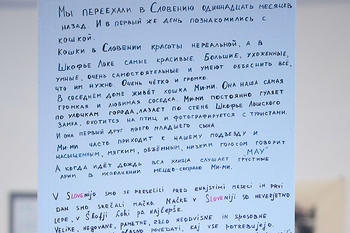 Мы переехали в Словению одиннадцать месяцев
назад. И в первый же день познакомились с
кошкой.
Кошки в Словении красоты нереальной, а в
Шкофье Локе самые красивые. Большие, ухоженные,
умные, очень самостоятельные и умеют объяснить всё,
что им нужно. Очень чётко и громко.
В соседнем доме живёт кошка Ми-ми. Она наша самая
громкая и любимая соседка. Ми-ми постоянно гуляет
по улочкам города, лазает по стене Шкофье Лошского
замка, охотится на птиц и фотографируется с туристами.
И она первый друг моего младшего сына.
Ми-ми часто приходит к нашему подъезду и
насыщенным, мягким, объёмным, низким голосом говорит
"МАУ"
А когда идёт дождь вся улица слушает грустные
арии в исполнении меццо-сопрано Ми-ми.
V Slovenijo smo se preselili pred enajstimi meseci in prvi
dan smo srečali mačko. Mačke v Sloveniji so neverjetno
lepe, v Škofji Loki pa najlepše.
Velike, negovane, pametne, zelo neodvisne in sposobne
povedati, kaj vse potrebujejo.